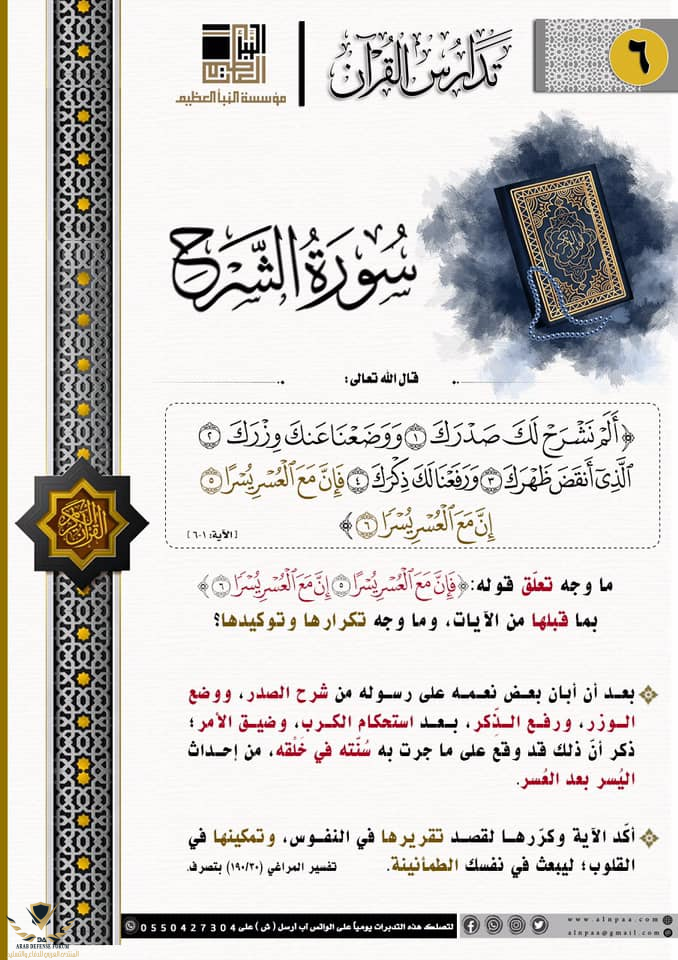 ٦
تَدَارُس القُرآن
النبأ العظيم
مؤسسة النبأ العظيم
سُورَةُ الشَّرْحِ
قال الله تعالى:
﴿أَلَمْ نَشْرَحْ لَكَ صَدْرَكَ ١ وَوَضَعْنَا عَنكَ وِزْرَكَ ٢
ٱلَّذِىٓ أَنقَضَ ظَهْرَكَ ٣ وَرَفَعْنَا لَكَ ذِكْرَكَ ٤ فَإِنَّ مَعَ ٱلْعُسْرِ يُسْرًا ٥
إِنَّ مَعَ ٱلْعُسْرِ يُسْرًا ٦﴾
[الآية: ١-٦]
ما وجه تعلّق قوله: ﴿فَإِنَّ مَعَ ٱلْعُسْرِ يُسْرًا ٥ إِنَّ مَعَ ٱلْعُسْرِ يُسْرًا ٦﴾
بما قبلها من الآيات، وما وجه تكرارها وتوكيدها؟
بعد أن أبان بعض نعمه على رسوله من شرح الصدر، ووضع
الوزر، ورفع الذِّكر، بعد استحكام الكرب، وضيق الأمر؛
ذكر أنّ ذلك قد وقع على ما جرت به سُنّته في خَلْقه، من إحداث
اليُسر بعد العُسر.
أكّد الآية وكرّرها لقصد تقريرها في النفوس، وتمكينها في
القلوب؛ ليبعث في نفسك الطمأنينة. تفسير المراغي (١٩٠/٣٠) بتصرف.
القرآن الكريم
لتصلك هذه التدبرات يومياً على الواتس آب أرسل (ش) على 0550427304
www.alnpaa.com
alnpaa@gmail.com
ARAB DEFENSE FORUM
المنتدى العربي للدفاع والتسليح